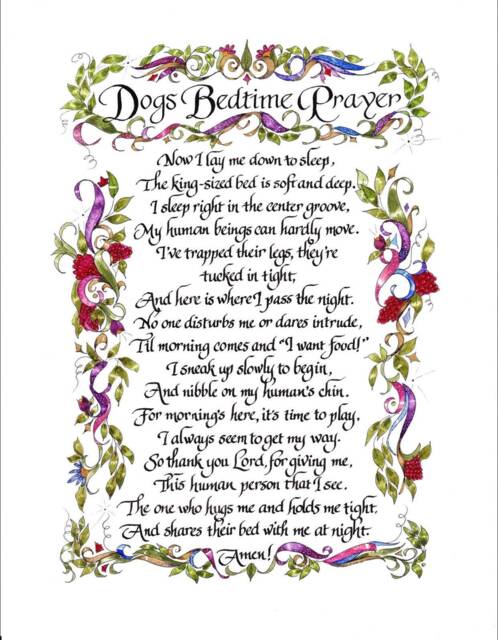 Dogs Bedtime Prayer
Now I lay me down to sleep,
The king-sized bed is soft and deep.
I sleep right in the center groove,
My human beings can hardly move.
I've trapped their legs, they're
tucked in tight,
And here is where I pass the night.
No one disturbs me or dares intrude,
Til morning comes and "I want food!"
I sneak up slowly to begin,
And nibble on my human's chin.
For morning's here, it's time to play,
I always seem to get my way.
So thank you Lord, for giving me,
This human person that I see.
The one who hugs me and holds me tight,
And shares their bed with me at night.
Amen!